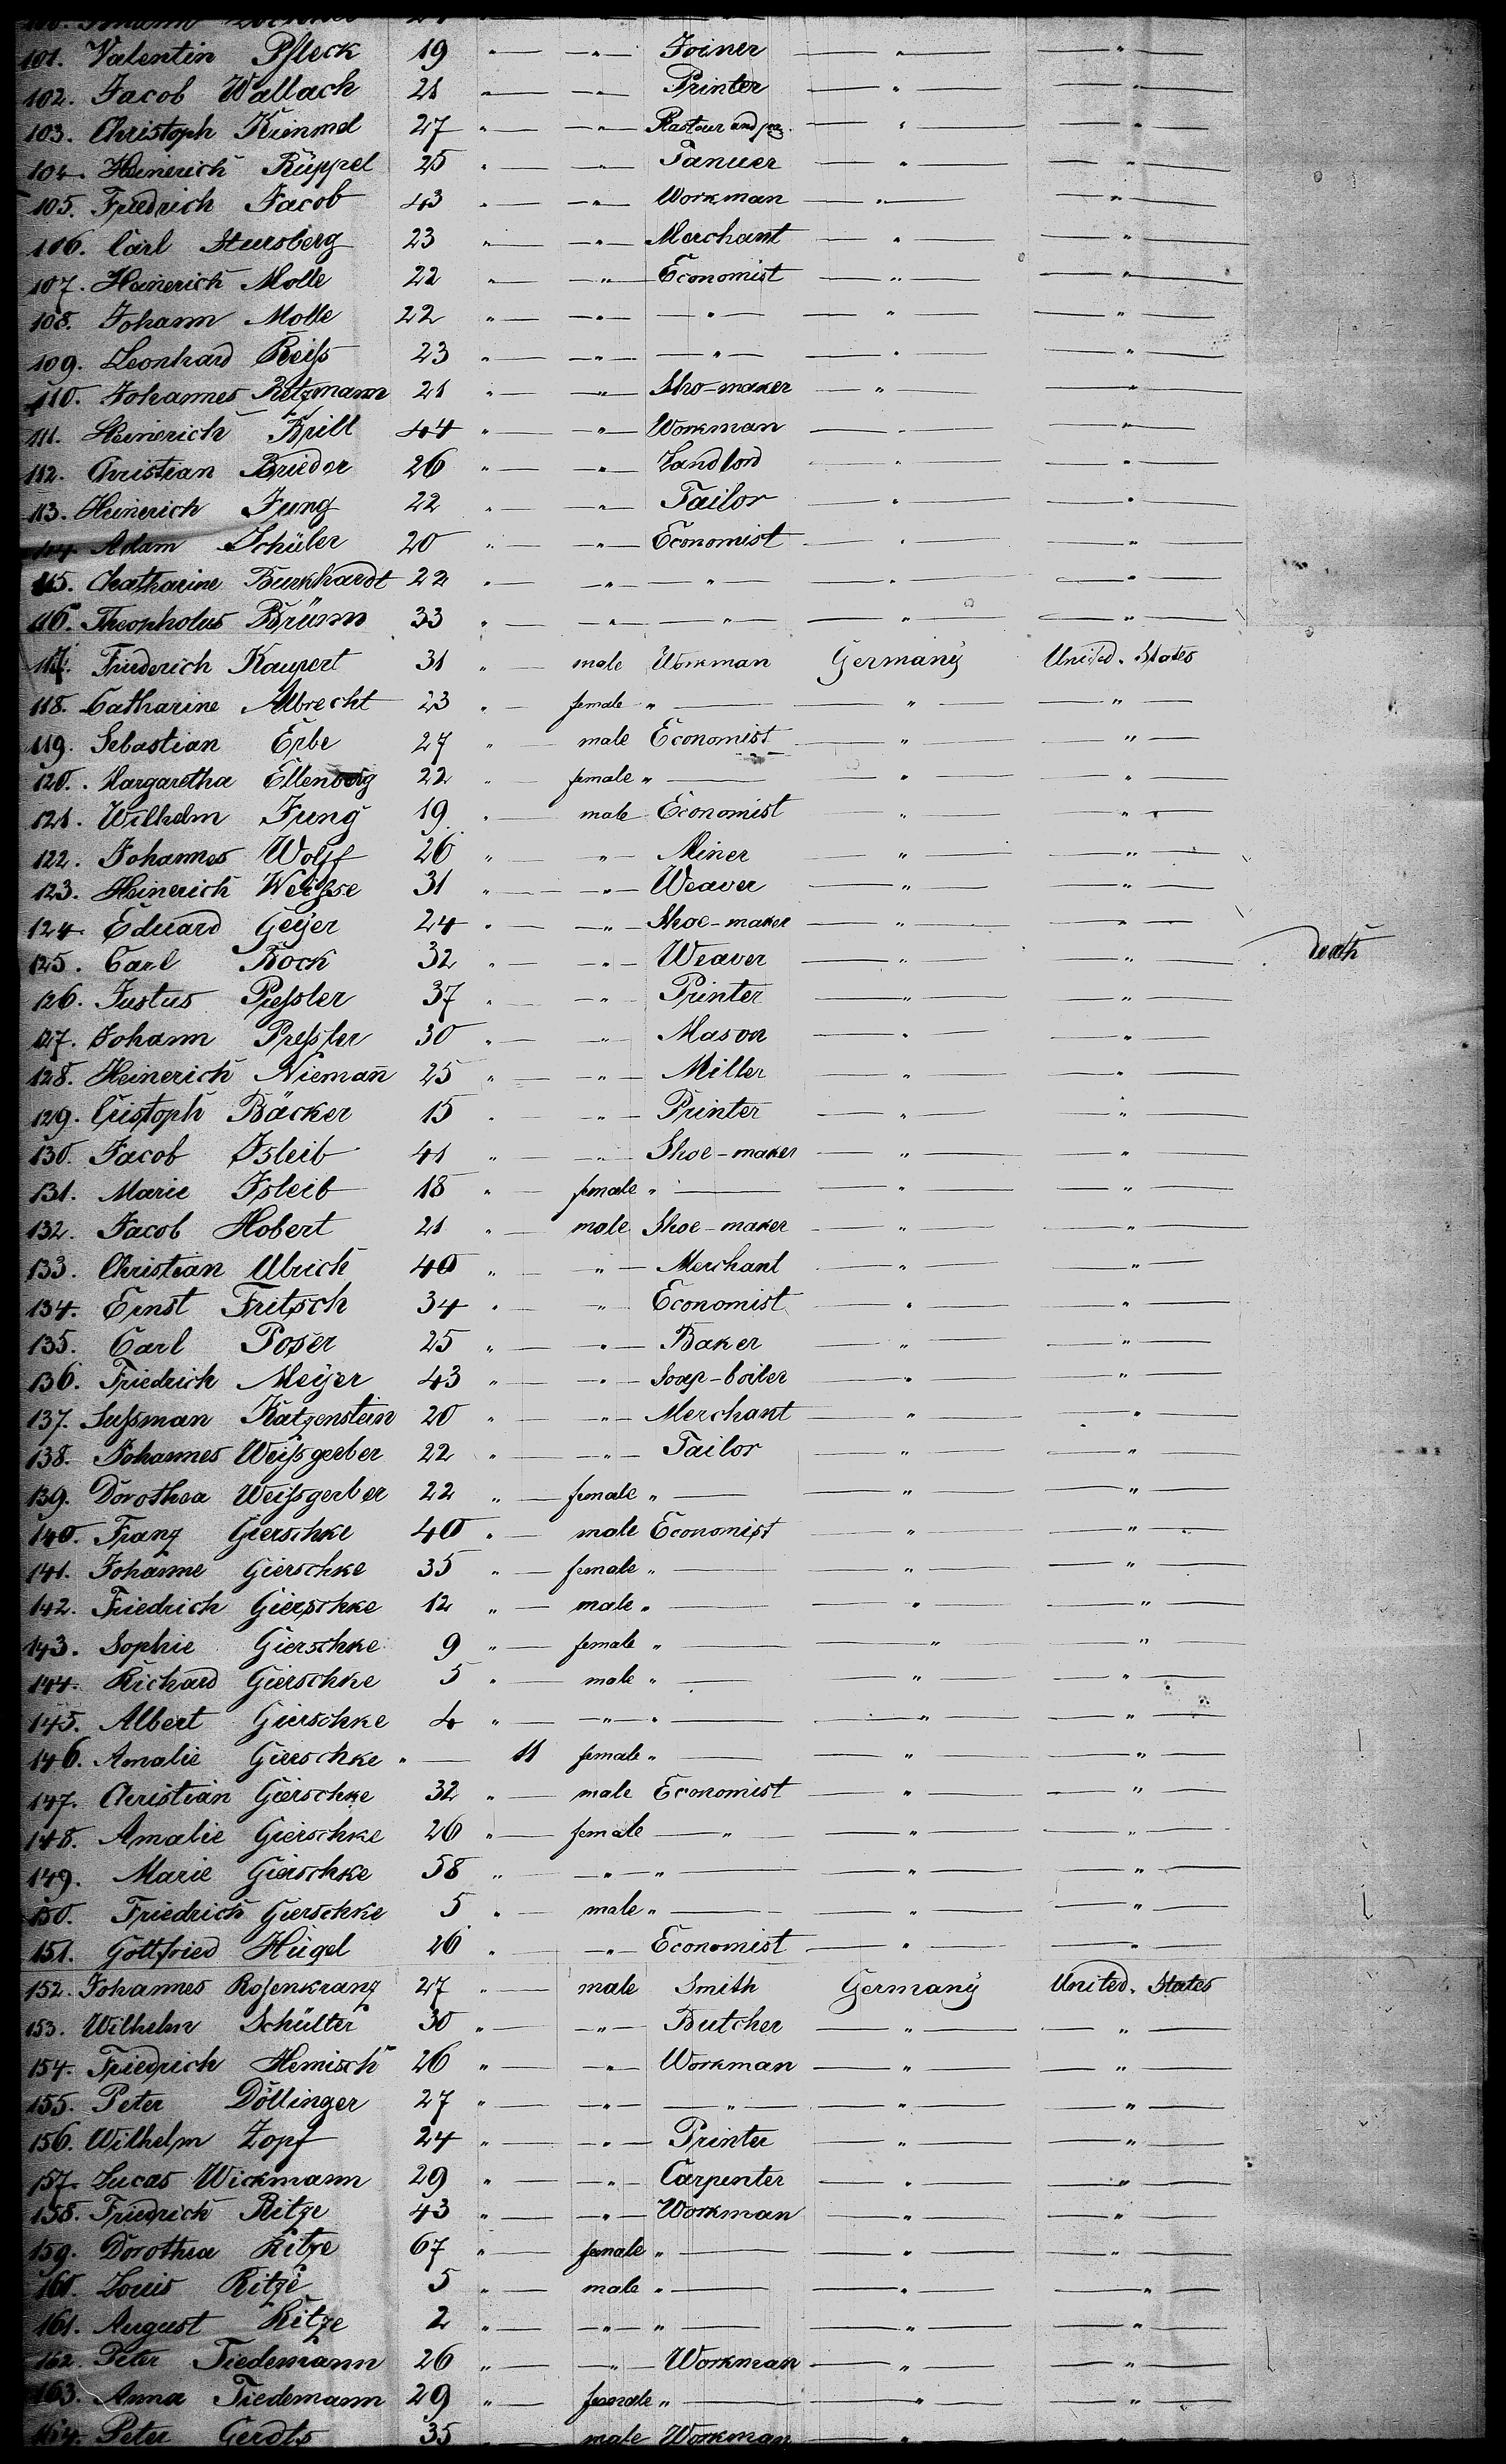 101. Valentin Pfleck 19 " — " — Joiner — " — — " —
102. Jacob Wallach 21 " — " — Printer — " — — " —
103. Christoph Kümmel 27 " — " — and — " — — " —
104. Heinerich Rüppel 25 " — " — Tanner — " — — " —
105. Friedrich Jacob 43 " — " — Workman — " — — " —
106. Carl Stursberg 23 " — " — Merchant — " — — " —
107. Heinerich Molle 22 " — " — Economist — " — — " —
108. Johann Molle 22 " — " — — " — — " — — " —
109. Leonhard Reiß 23 " — " — — " — — " — — " —
110. Johannes Retzmann 21 " — " — Sho-maker — " — — " —
111. Heinerich Brill 44 " — " — Workman — " — — " —
112. Christian Brieder 26 " — " — Landlord — " — — " —
113. Heinerich Jung 22 " — " — Tailor — " — — " —
114. Adam Schüler 20 " — " — Economist — " — — " —
115. Chatharine Burkhardt 22 " — " — — " — — " — — " —
116. Theopholus Brünn 33 " — " — — " — — " — — " —
117. Friederich Kaupert 31 " — male Workman Germany United. States
118. Catharine Albrecht 23 " — female " — — " — — " —
119. Sebastian Erbe 27 " — male Economist — " — — " —
120. Margaretha Ellenberg 22 " — female " — — " — — " —
121. Wilhelm Jung 19 " — male Economist — " — — " —
122. Johannes Wolff 26 " — " — Miner — " — — " —
123. Heinerich Weißse 31 " — " — Weaver — " — — " —
124. Eduard Geijer 24 " — " — Shoe-maker — " — — " —
125. Carl Bock 32 " — " — Weaver — " — — " — death
126. Justus Preßler 37 " — " — Printer — " — — " —
127. Johann Preßler 30 " — " — Mason — " — — " —
128. Heinerich Niemañ 25 " — " — Miller — " — — " —
129. Cristoph Bäcker 15 " — " — Printer — " — — " —
130. Jacob Isleib 41 " — " — Shoe-maker — " — — " —
131. Marie Isleib 18 " — female " — — " — — " —
132. Jacob Hobert 21 " — male Shoe-maker — " — — " —
133. Christian Ulrich 40 " — " — Merchant — " — — " —
134. Ernst Fritsch 34 " — " — Economist — " — — " —
135. Carl Poser 25 " — " — Baker — " — — " —
136. Friedrich Meijer 43 " — " — Soap-boiler — " — — " —
137. Sußman Katzenstein 20 " — " — Merchant — " — — " —
138. Johannes Weißgerber 22 " — " — Tailor — " — — " —
139. Dorothea Weißgerber 22 " — female " — — " — — " —
140. Franz Gierschke 40 " — male Economist — " — — " —
141. Johanne Gierschke 35 " — female " — — " — — " —
142. Friedrich Gierschke 12 " — male " — — " — — " —
143. Sophie Gierschke 9 " — female " — — " — — " —
144. Richard Gierschke 5 " — male " — — " — — " —
145. Albert Gierschke 4 " — " — " — — " — — " —
146. Amalie Gierschke " — 11 female " — — " — — " —
147. Christian Gierschke 32 " — male Economist — " — — " —
148. Amalie Gierschke 26 " — female — " — — " — — " —
149. Marie Gierschke 58 " — " — " — — " — — " —
150. Friedrich Gierschke 5 " — male " — — " — — " —
151. Gottfried Hügel 26 " — " — Economist — " — — " —
152. Johannes Rosenkranz 27 " — male Smith Germany United. States
153. Wilhelm Schülter 30 " — " — Butcher — " — — " —
154. Friedrich Hemisch 26 " — " — Workman — " — — " —
155. Peter Döllinger 27 " — " — — " — — " — — " —
156. Wilhelm Zopf 24 " — " — Printer — " — — " —
157. Lucas Wickmann 29 " — " — Carpenter — " — — " —
158. Friedrich Ritze 43 " — " — Workman — " — — " —
159. Dorothea Ritze 67 " — female " — — " — — " —
160. Louis Ritze 5 " — male " — — " — — " —
161. August Ritze 2 " — " — " — — " — — " —
162. Peter Tiedemann 26 " — " — Workman — " — — " —
163. Anna Tiedemann 29 " — female " — — " — — " —
164. Peter Gerdts 35 male Workman "